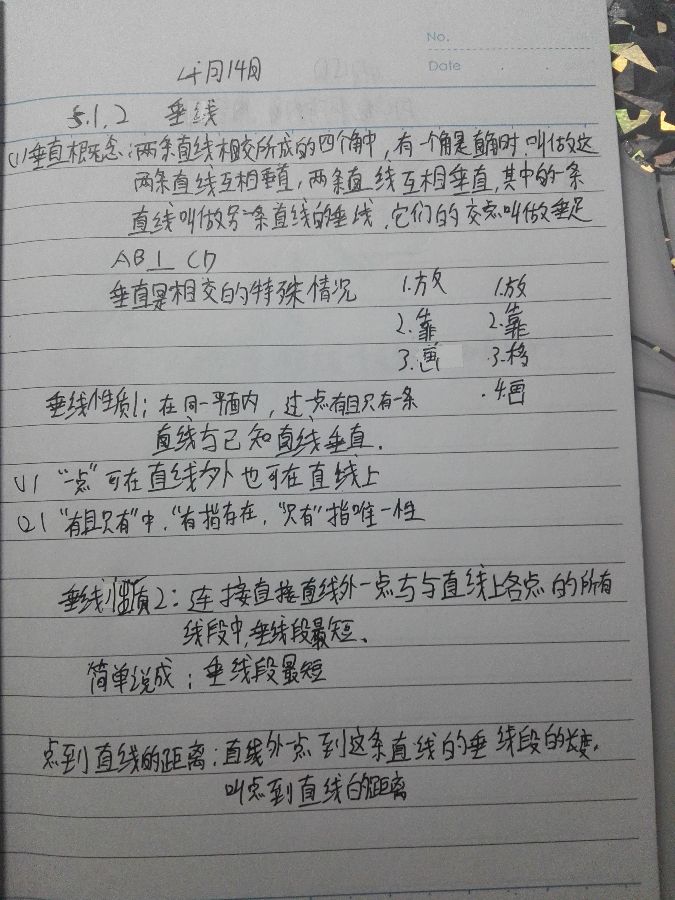 No.
Date
4月14日
5.1.2 垂线
(1)垂直概念:两条直线相交所成的四个角中,有一个角是直角时,叫做这
两条直线互相垂直,两条直线互相垂直,其中的一条
直线叫做另一条直线的垂线,它们的交点叫做垂足
AB⊥CD
垂直是相交的特殊情况 1.放 1.放
2.靠 2.靠
3.画 3.移
4.画
垂线性质1:在同一平面内,过一点有且只有一条
直线与已知直线垂直.
(1)"一点"可在直线外也可在直线上
(2)"有且只有"中,"有指存在,"只有"指唯一性
垂线性质2:连接直接直线外一点与与直线上各点的所有
线段中,垂线段最短、
简单说成:垂线段最短
点到直线的距离:直线外一点到这条直线的垂线段的长度,
叫点到直线的距离